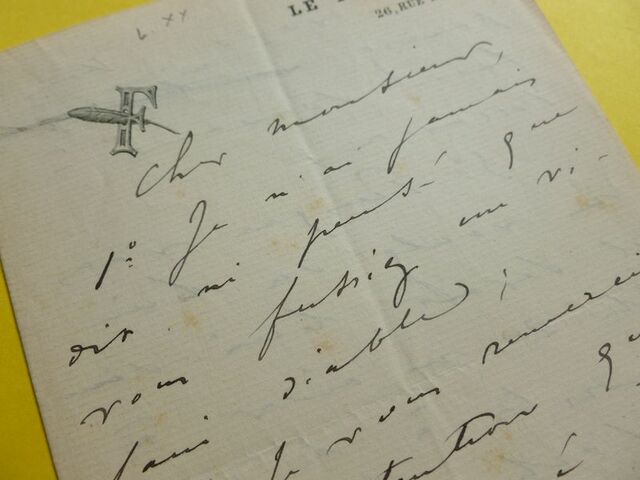 L. XX
LE
26, RUE
F
Cher monsieur,
1º Je n'ai jamais
dit ni pensé que
vous fussiez un vi-
lain diable ;
Je vous remercie